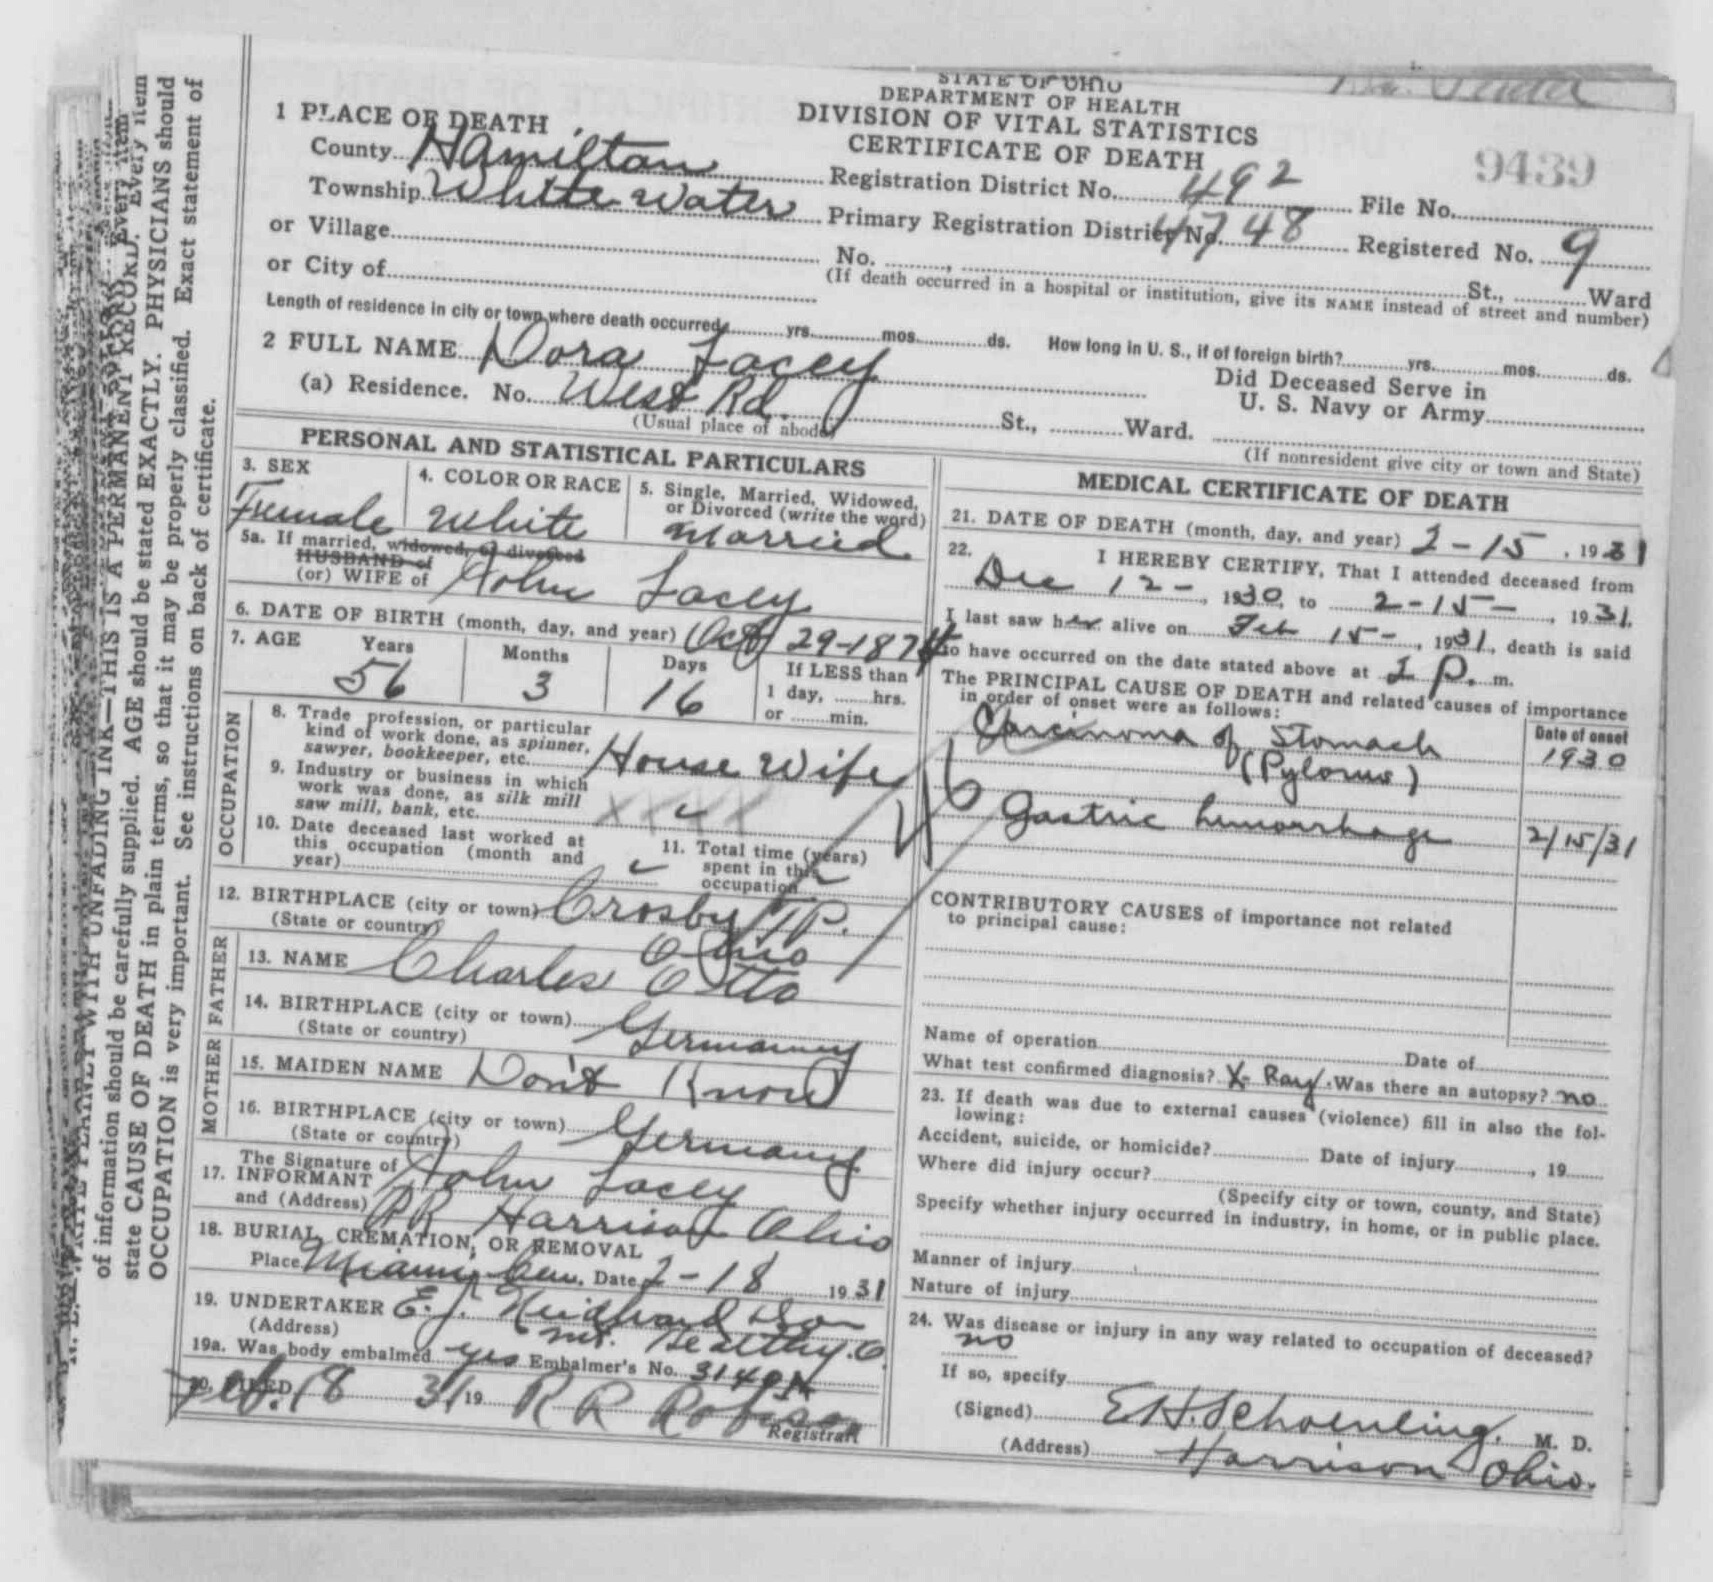 STATE OF OHIO
DEPARTMENT OF HEALTH
DIVISION OF VITAL STATISTICS
CERTIFICATE OF DEATH
9439
1 PLACE OF DEATH
County Hamilton Registration District No. 492 File No.
Township White Water Primary Registration District No. 4748 Registered No. 9
or Village No. , St., Ward
or City of (If death occurred in a hospital or institution, give its NAME instead of street and number)
Length of residence in city or town where death occurred yrs. mos. ds. How long in U. S., if of foreign birth? yrs. mos. ds.
2 FULL NAME Dora Lacey Did Deceased Serve in
U. S. Navy or Army
(a) Residence. No. West Rd. St., Ward.
(Usual place of abode) (If nonresident give city or town and State)
PERSONAL AND STATISTICAL PARTICULARS
3. SEX Female
4. COLOR OR RACE White
5. Single, Married, Widowed,
or Divorced (write the word)
Married
5a. If married, widowed, or divorced
HUSBAND of
(or) WIFE of John Lacey
6. DATE OF BIRTH (month, day, and year) Oct 29-1874
7. AGE Years 56 Months 3 Days 16 If LESS than
1 day, hrs.
or min.
OCCUPATION
8. Trade profession, or particular
kind of work done, as spinner,
sawyer, bookkeeper, etc. House Wife
9. Industry or business in which
work was done, as silk mill
saw mill, bank, etc. XXXX
10. Date deceased last worked at
this occupation (month and
year)
11. Total time (years)
spent in this
occupation
12. BIRTHPLACE (city or town) Crosby TP.
(State or country) Ohio
FATHER
13. NAME Charles Otto
14. BIRTHPLACE (city or town) Germany
(State or country)
MOTHER
15. MAIDEN NAME Don't Know
16. BIRTHPLACE (city or town) Germany
(State or country)
17. The Signature of
INFORMANT John Lacey
and (Address) RR Harrison Ohio
18. BURIAL, CREMATION, OR REMOVAL
Place Miami Cem. Date 2-18 1931
19. UNDERTAKER E. J. Son
(Address) Mt. Healthy. O.
19a. Was body embalmed yes Embalmer's No. 3149A
20. FILED Feb. 18 31 19 R R Robison
Registrar
MEDICAL CERTIFICATE OF DEATH
21. DATE OF DEATH (month, day, and year) 2-15, 1931
22. I HEREBY CERTIFY, That I attended deceased from
Dec 12-, 1930, to 2-15-, 1931.
I last saw her alive on Feb 15-, 1931, death is said
to have occurred on the date stated above at 2 P. m.
The PRINCIPAL CAUSE OF DEATH and related causes of importance
in order of onset were as follows:
Date of onset
Carcinoma of Stomach 1930
(Pylorus)
46
Gastric hemorrhage 2/15/31
CONTRIBUTORY CAUSES of importance not related
to principal cause:
Name of operation Date of
What test confirmed diagnosis? X-Ray. Was there an autopsy? no
23. If death was due to external causes (violence) fill in also the fol-
lowing:
Accident, suicide, or homicide? Date of injury , 19
Where did injury occur?
(Specify city or town, county, and State)
Specify whether injury occurred in industry, in home, or in public place.
Manner of injury
Nature of injury
24. Was disease or injury in any way related to occupation of deceased?
no
If so, specify
(Signed) E.H. Schoenling. M. D.
(Address) Harrison Ohio.
N. B.—WRITE PLAINLY WITH UNFADING INK—THIS IS A PERMANENT RECORD. Every item
of information should be carefully supplied. AGE should be stated EXACTLY. PHYSICIANS should
state CAUSE OF DEATH in plain terms, so that it may be properly classified. Exact statement of
OCCUPATION is very important. See instructions on back of certificate.